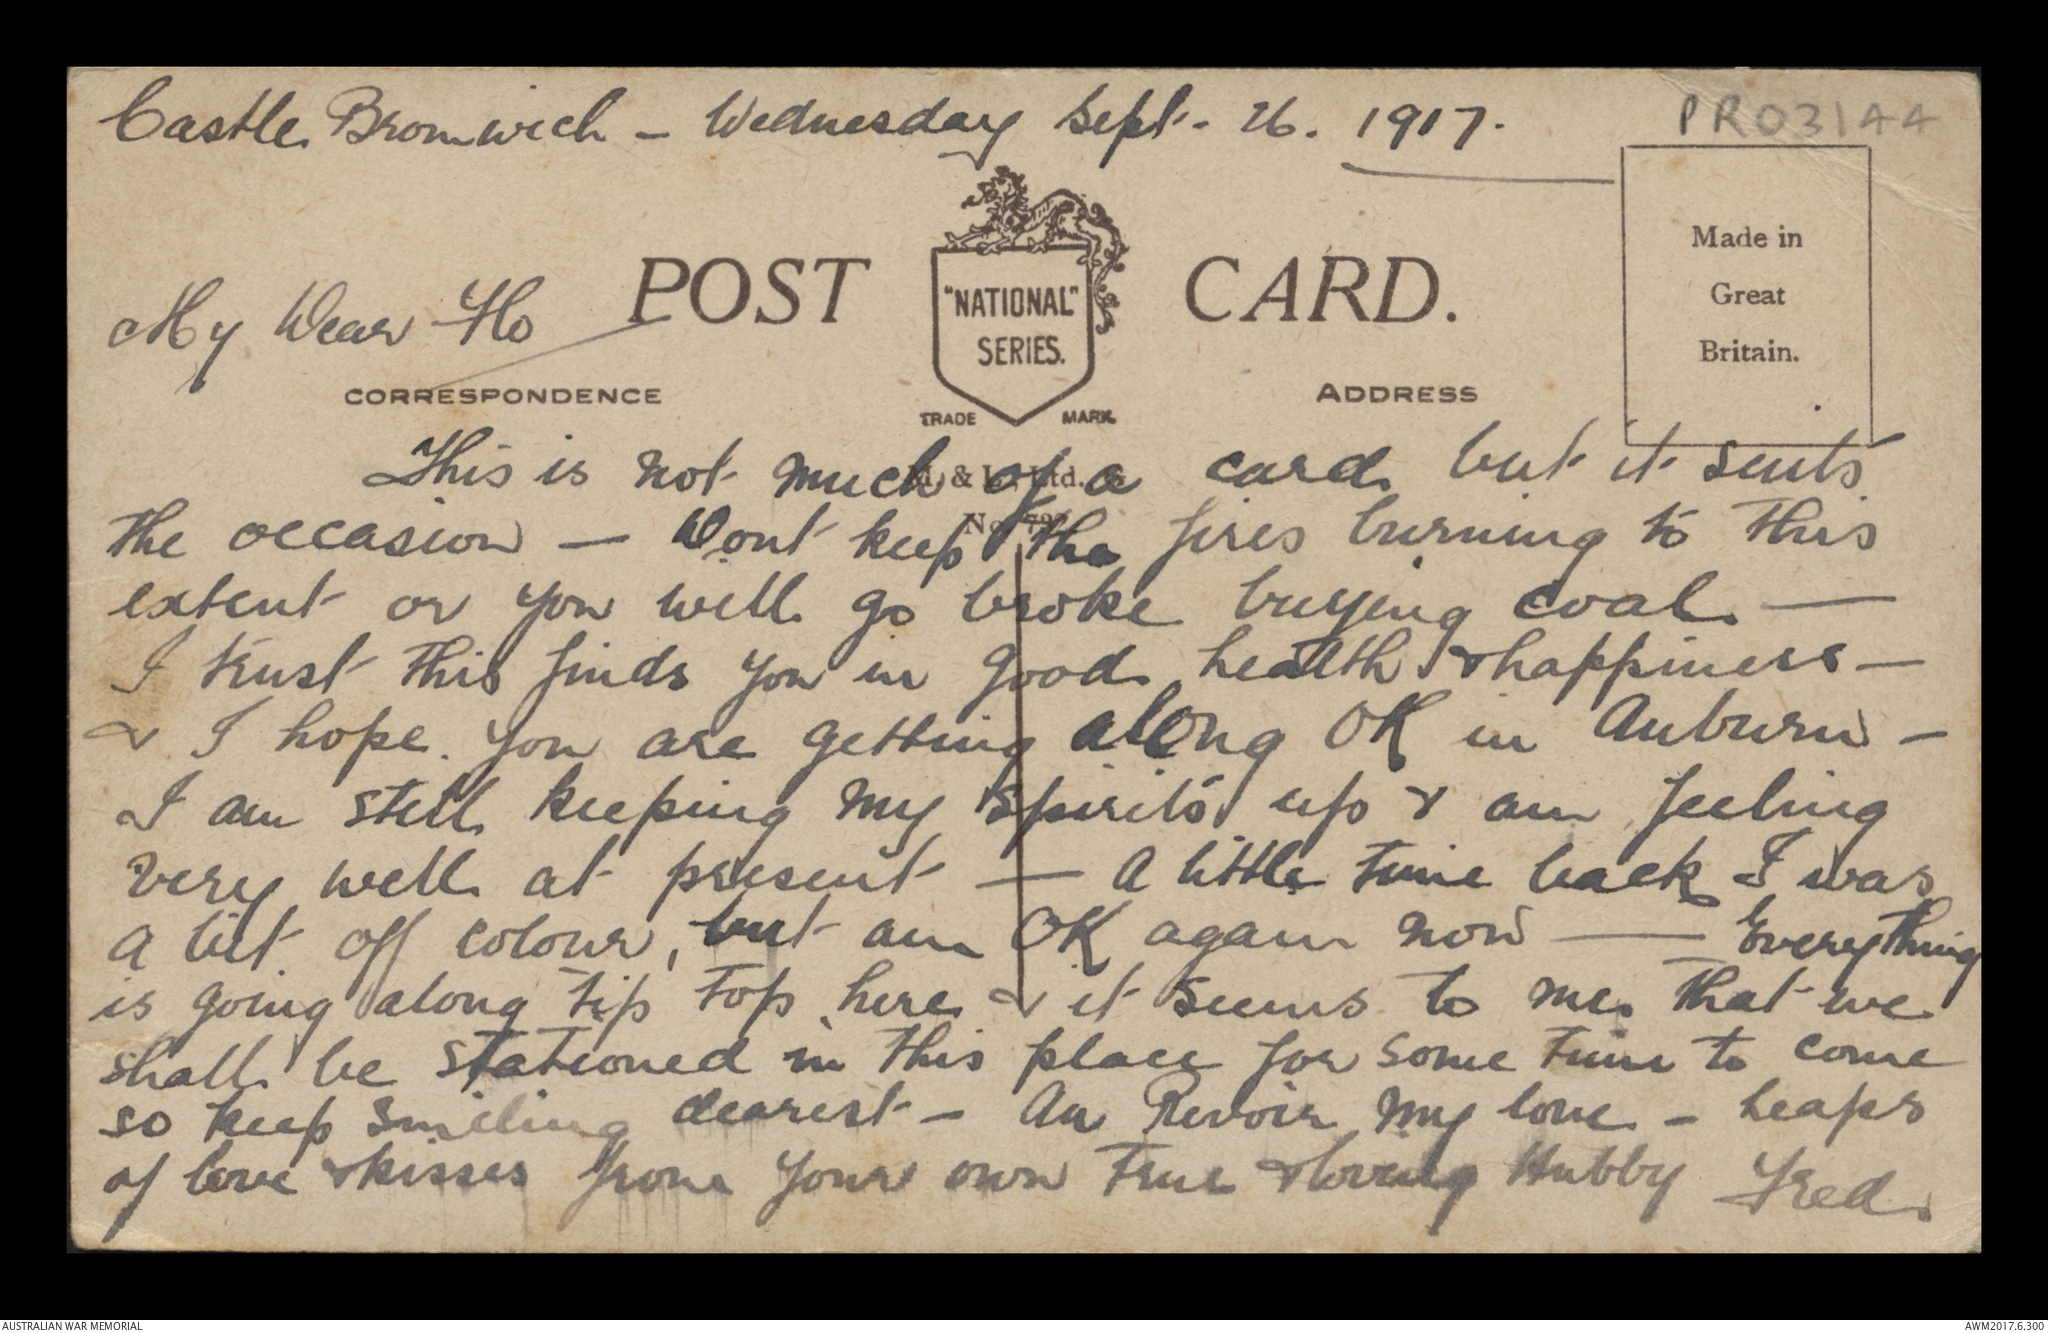 Castle Bromwich - Wednesday Sept. 26. 1917.
PR03144
Made in
Great
Britain.
POST CARD.
"NATIONAL"
SERIES.
TRADE MARK.
My Dear Flo
CORRESPONDENCE
ADDRESS
M. & L., Ltd.
No.
This is not much of a card but it suits
the occasion — Dont keep the fires burning to this
extent or you will go broke buying coal —
I trust this finds you in good health & happiness —
& I hope you are getting along OK in Auburn —
I am still keeping my spirits up & am feeling
very well at present — A little time back I was
a bit off colour, but am OK again now — Everything
is going along tip top here & it seems to me that we
shall be stationed in this place for some time to come
so keep smiling dearest — Au Revoir my love — heaps
of love & kisses from your own true & loving Hubby Fred.
AUSTRALIAN WAR MEMORIAL
AWM2017.6.300